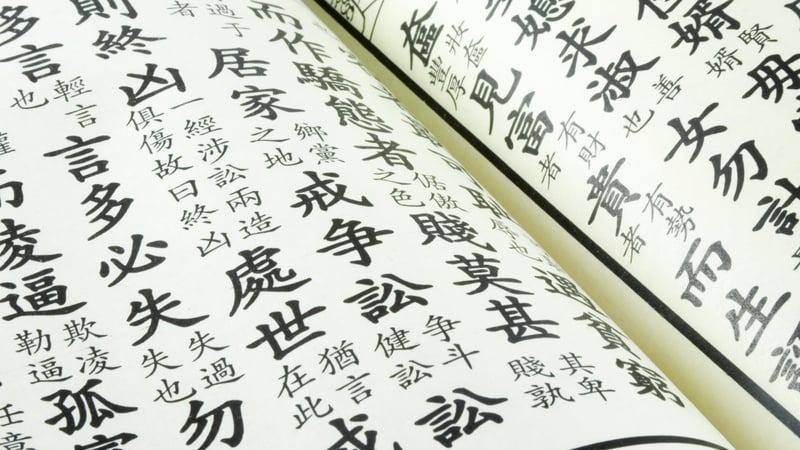 佳婿賢婿毋
媳求淑善也女勿計
奩妝奩豐厚見富有財者貴有勢者而生
而作驕態者倨傲之色賤莫甚其卑賤孰
過于者居家鄉黨之地戒爭訟爭斗健訟訟
則終凶一經涉訟兩造俱傷故曰終凶處世猶言在此戒
多言輕言也言多必失失過失也勿
凌逼欺凌勒逼孤
任意